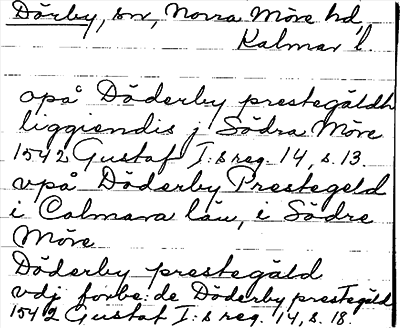 Dörby, sn, Norra Möre hd,
Kalmar l.
opå Döderby prestegäldh
liggiendis j Södra Möre
1542 Gustaf I:s reg. 14, s. 13.
vpå Döderby Prestegeld
i Calmara län, i Södre
Möre
Döderby prestegäld
vdj forbe:de Döderby prestegäld
1542 Gustaf I:s reg. 14, s. 18.